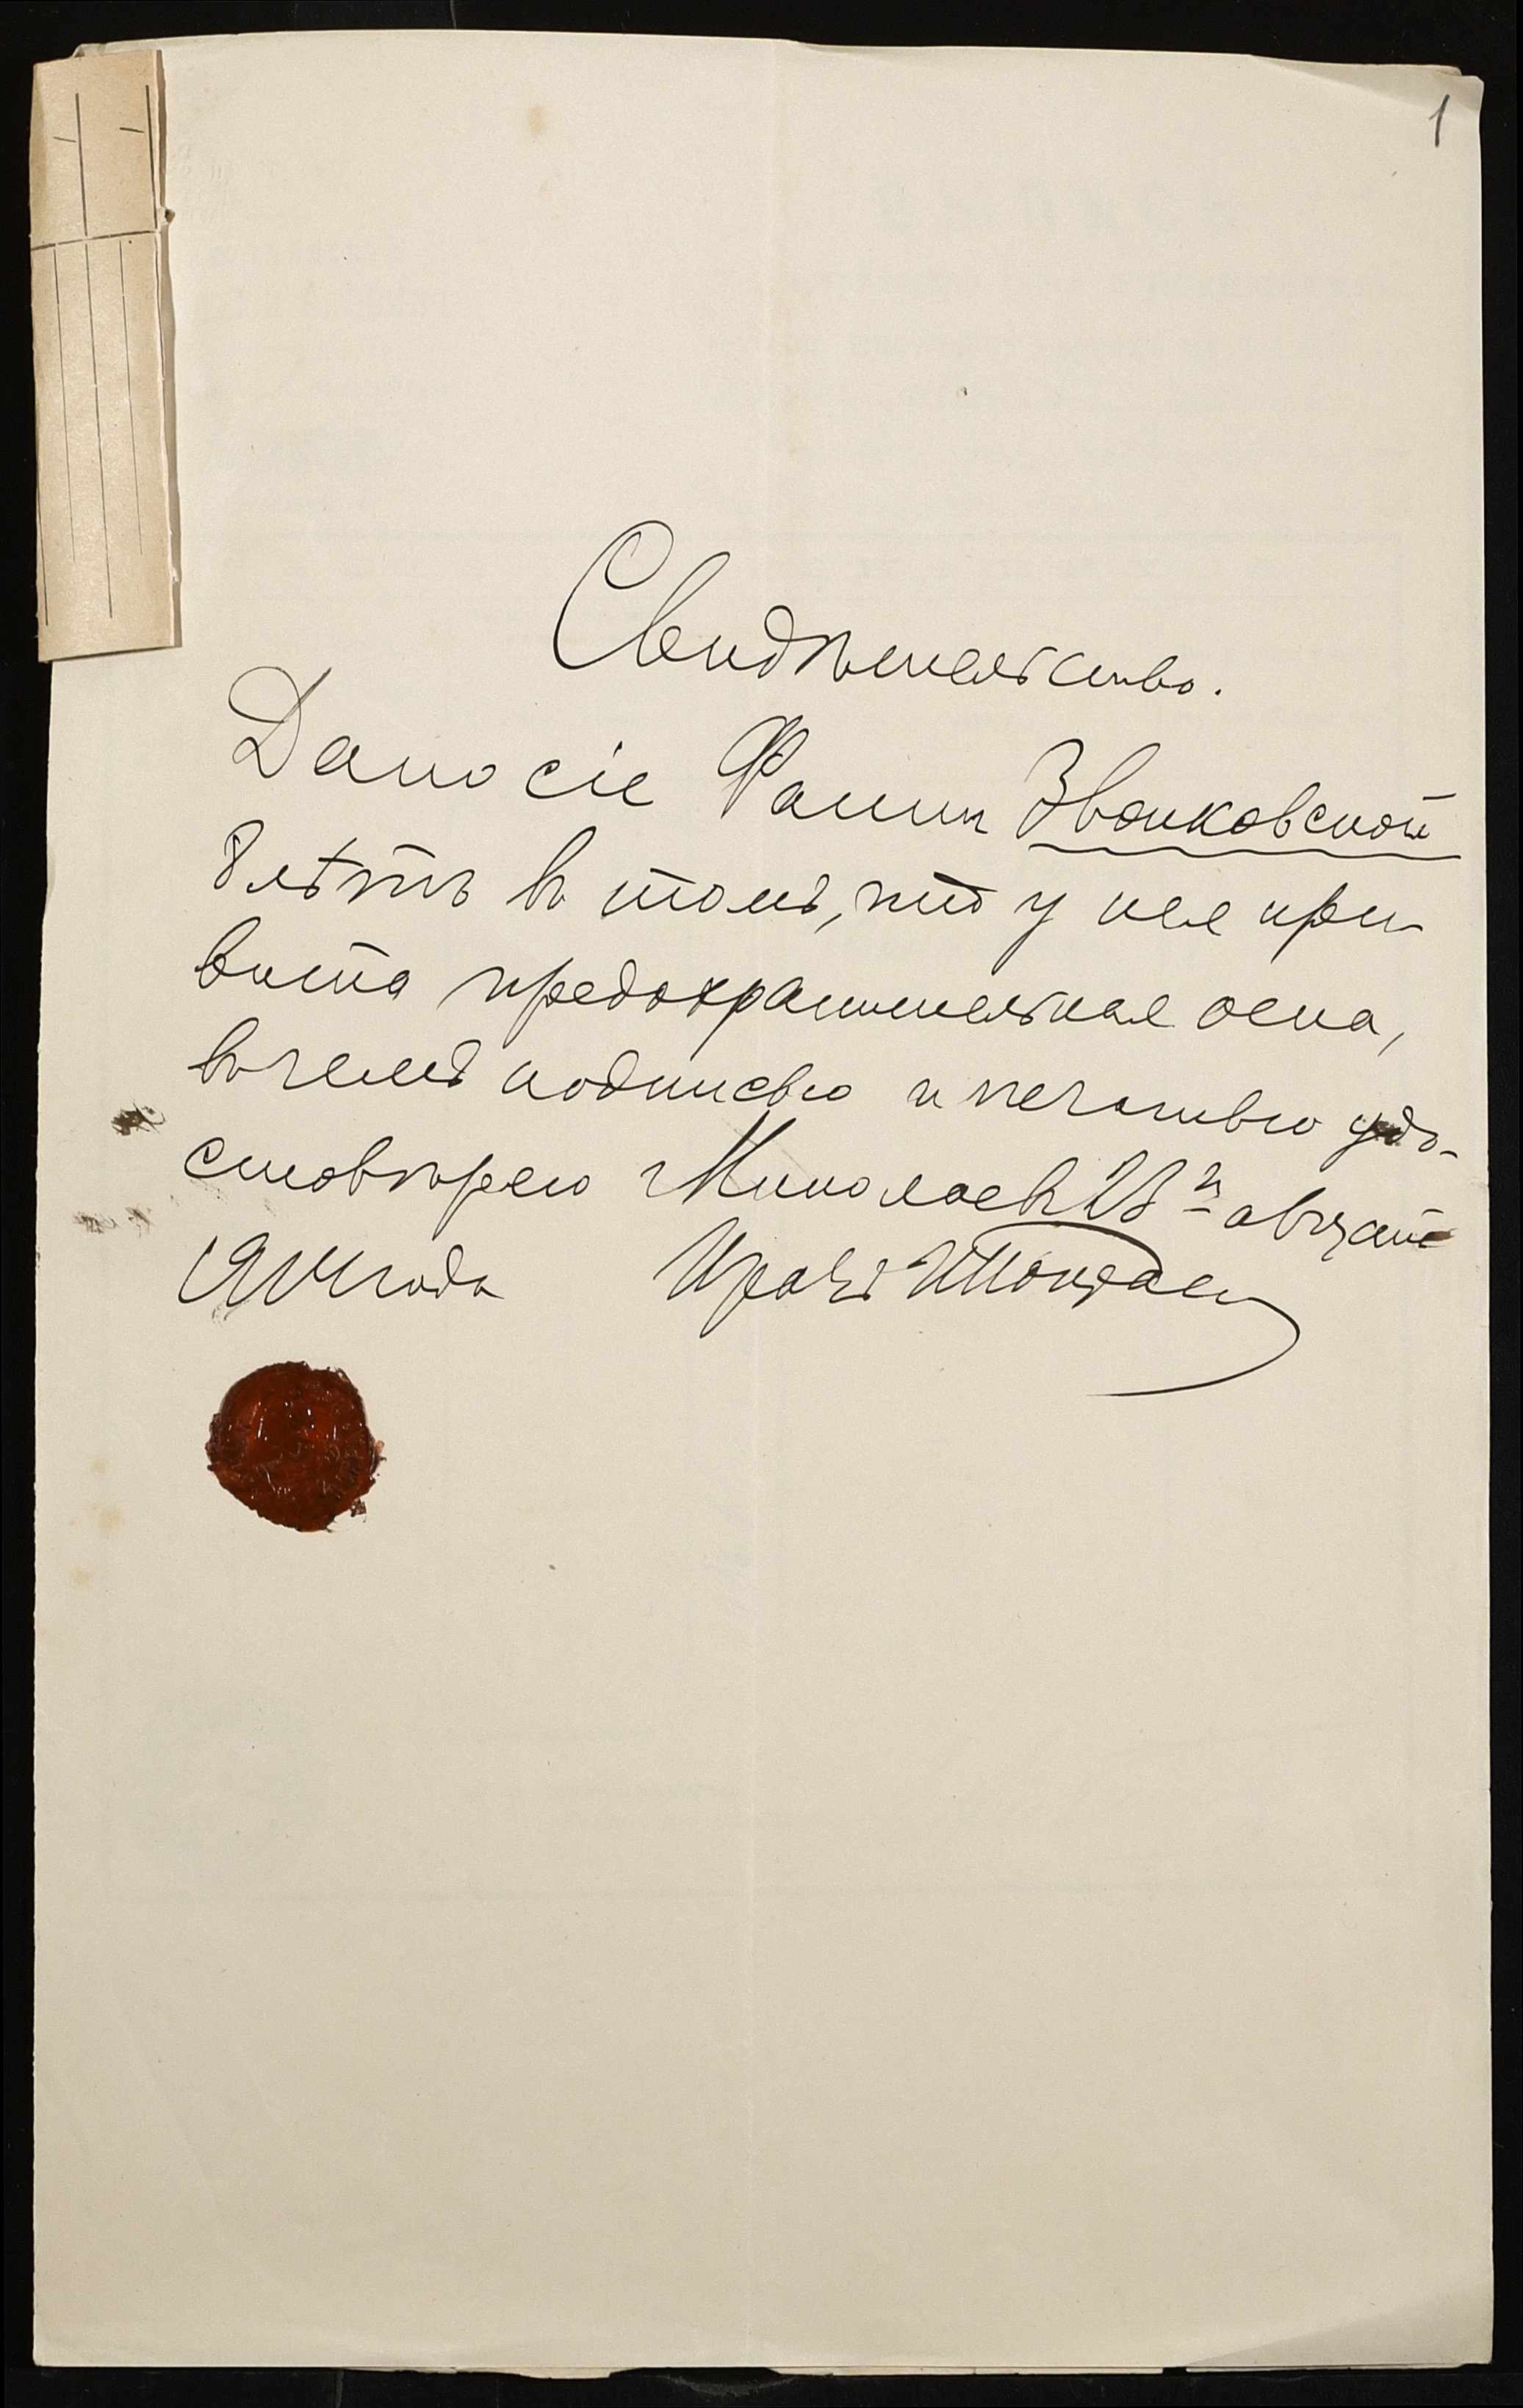 1
Свидѣтельство.
Дано сіе Фанни Звонковской
8 лѣтъ въ томъ, что у нея при
вита предохранительная оспа,
въ чемъ подписью и печатью удо-
стовѣряю Николаевъ 28го августа
года Врачъ